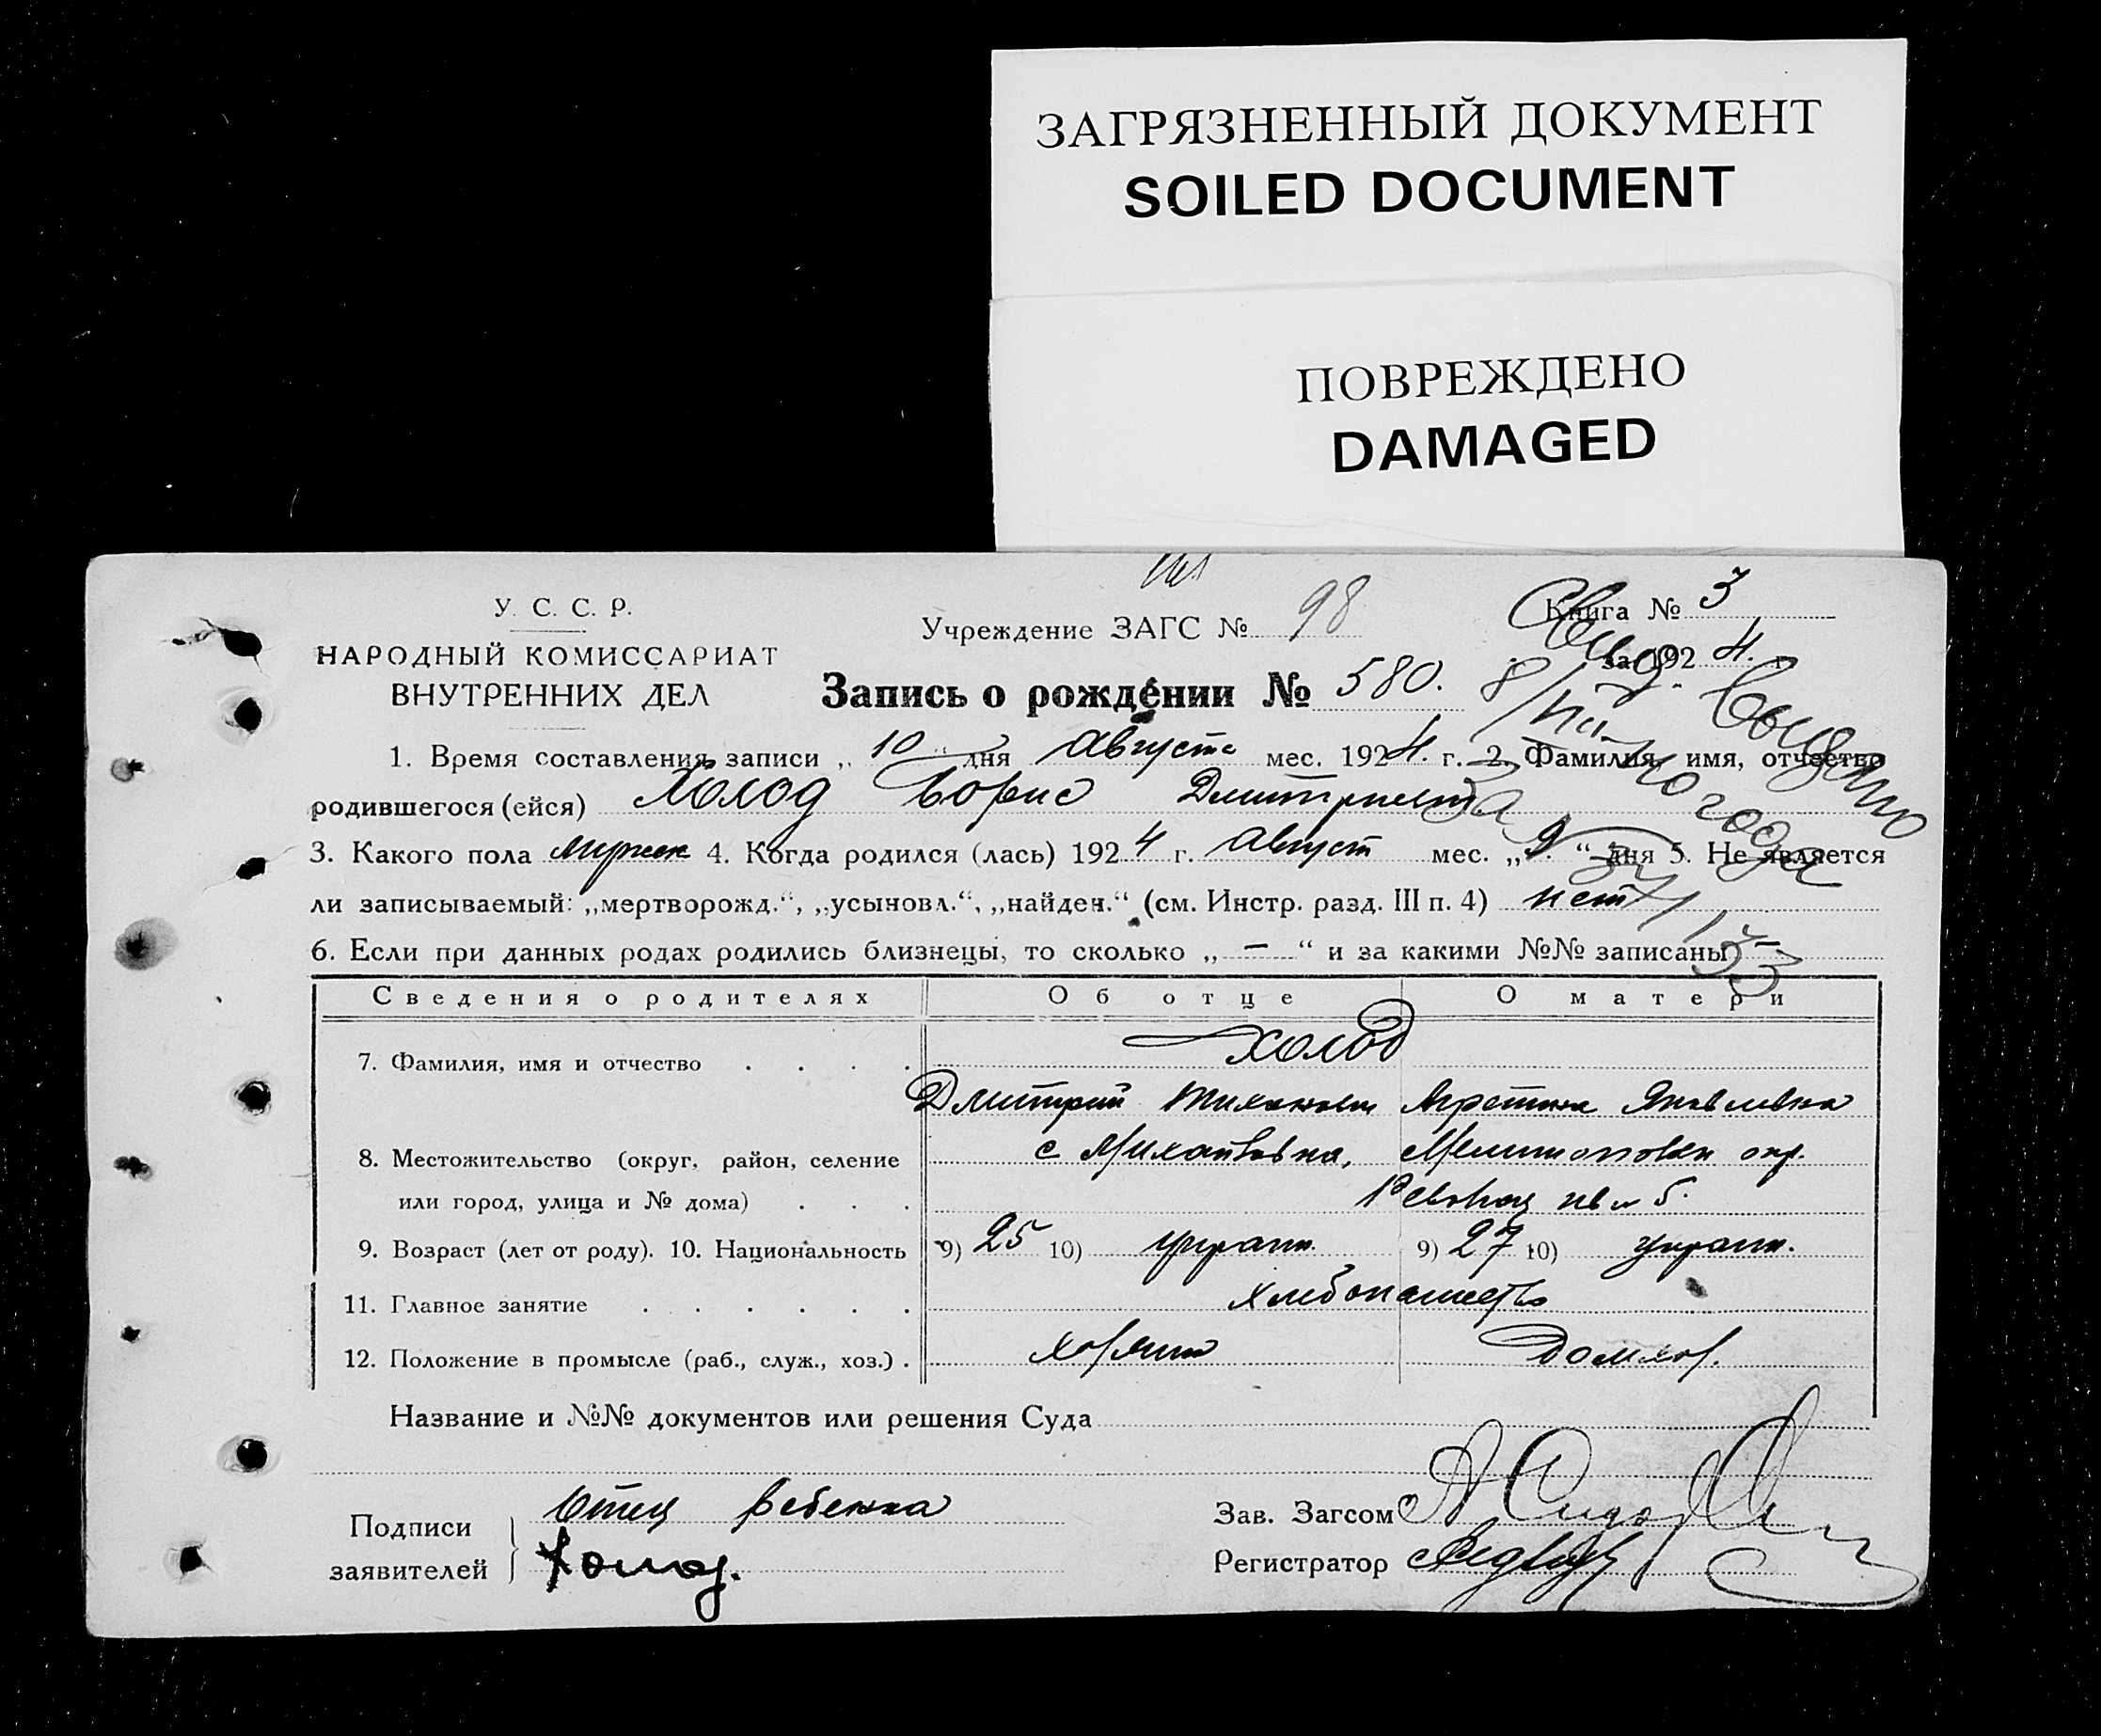 ЗАГРЯЗНЕННЫЙ ДОКУМЕНТ
SOILED DOCUMENT
ПОВРЕЖДЕНО
DAMAGED
У. С. С. Р.
НАРОДНЫЙ КОМИССАРИАТ
ВНУТРЕННИХ ДЕЛ
Учреждение ЗАГС № 98
Книга № 3
за 1924 г.
Запись о рождении № 580.
1. Время составления записи „10“ дня Августа мес. 1924. г. 2. Фамилия, имя, отчество
родившегося (ейся) Холод Борис Дмитриевич
3. Какого пола мужск 4. Когда родился (лась) 1924 г. Август мес. „9.“ дня 5. Не является
ли записываемый: „мертворожд.“, „усыновл.“, „найден.“ (см. Инстр. разд. III п. 4) нет
6. Если при данных родах родились близнецы, то сколько „—“ и за какими №№ записаны —
Сведения о родителях Об отце О матери
7. Фамилия, имя и отчество . . . . Холод
Дмитрий Тихонович Яковлевна
8. Местожительство (округ, район, селение с Михайловка, окр.
или город, улица и № дома) . . . 5.
9. Возраст (лет от роду). 10. Национальность 9) 25 10) украин. 9) 27 10) украин.
11. Главное занятие . . . . . . хлебопашество
12. Положение в промысле (раб., служ., хоз.) . хозяин домхоз.
Название и №№ документов или решения Суда
Подписи
заявителей
Отец ребенка
Холод.
Зав. Загсом
Регистратор